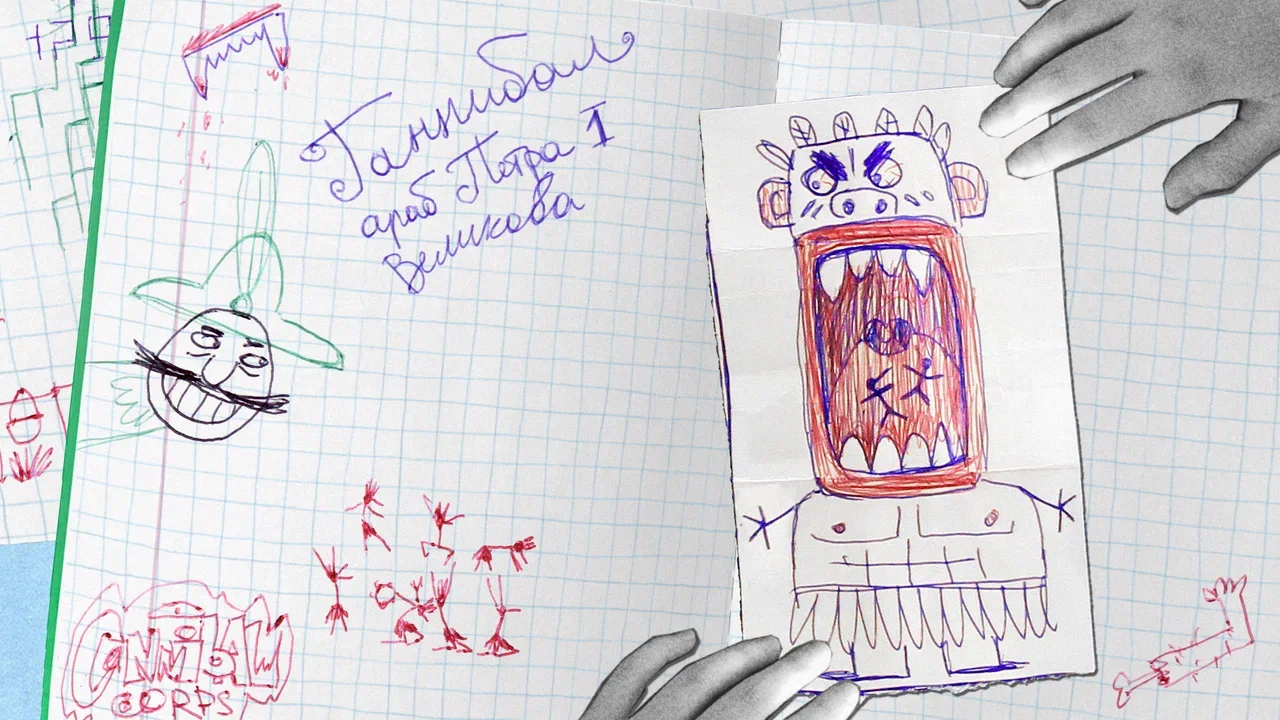 Ганнибал
араб Петра I
Великова
CORPS